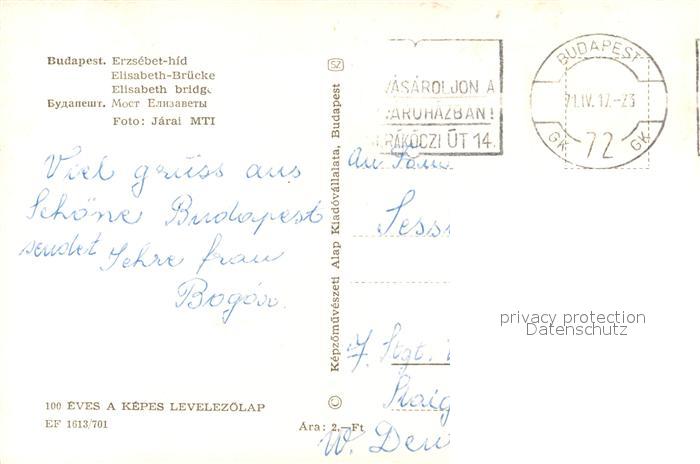 Budapest. Erzsébet-híd
Elisabeth-Brücke
Elisabeth bridge
Будапешт. Мост Елизаветы
Foto: Járai MTI
Viel grüss aus
Schöne Budapest
sendet Sehre frau
Bogár.
100 ÉVES A KÉPES LEVELEZŐLAP
EF 1613/701
Ára: 2,—Ft
Képzőművészeti Alap Kiadóvállalata, Budapest
SZ
VÁSÁROLJON A
ÁRUHÁZBAN!
RÁKÓCZI ÚT 14.
BUDAPEST
71.IV. 17.-23
GK 72 GK
An Fam
Sess
privacy protection
Datenschutz
7. Stgt.
Staig
W. Deu